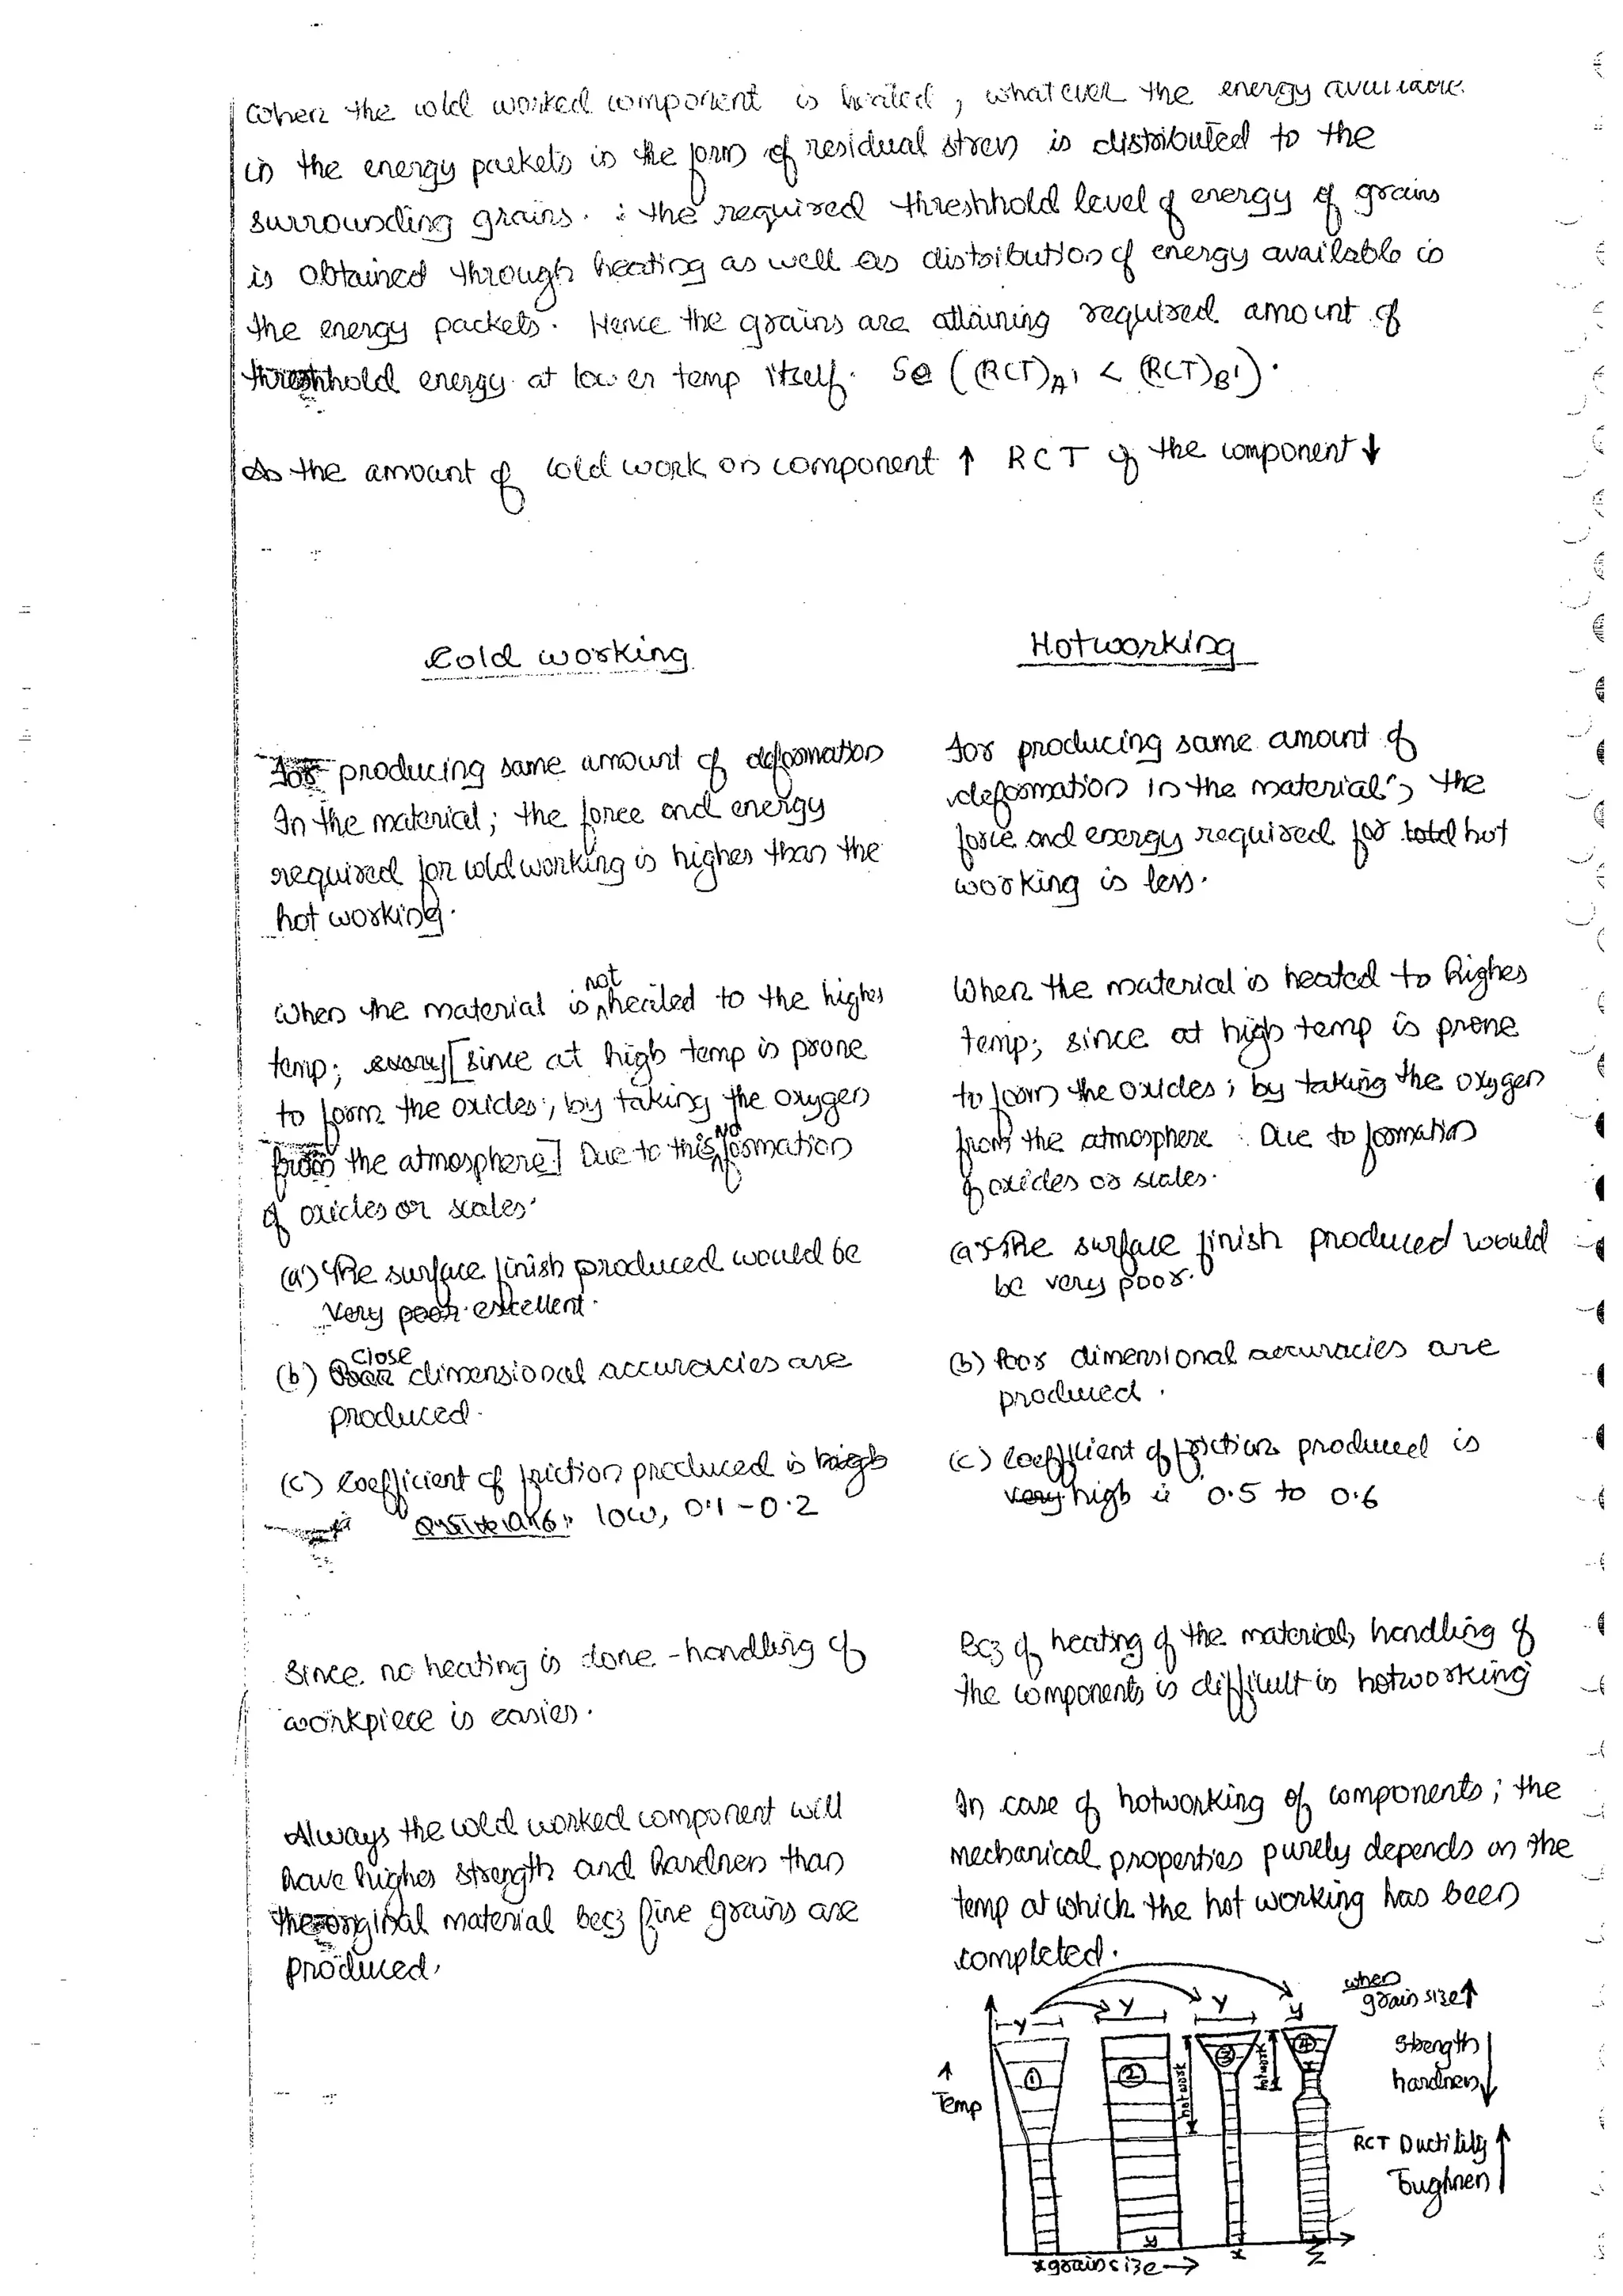 When the cold worked component is heated, whatever the energy available
in the energy packets in the form of residual stress is distributed to the
surrounding grains. ∴ the required threshhold level of energy of grains
is obtained through heating as well as distribution of energy available in
the energy packets. Hence the grains are attaining required amount of
threshhold energy at lower temp itself. So ( (RCT)A' < (RCT)B' ).
As the amount of cold work on component ↑ RCT of the component ↓
Cold working
for producing same amount of deformation
In the material; the force and energy
required for cold working is higher than the
hot working.
When the material is not heated to the higher
temp; [since at high temp is prone
to form the oxides; by taking the oxygen
from the atmosphere] Due to this No formation
of oxides or scales.
(a) The surface finish produced would be
Very excellent.
(b) close dimensional accuracies are
produced.
(c) Coefficient of friction produced is
low, 0.1 - 0.2
Since no heating is done - handling of
workpiece is easier.
Always the cold worked component will
have higher strength and hardness than
the original material bcz fine grains are
produced.
Hotworking
for producing same amount of
deformation in the material, the
force and energy required for hot
working is less.
When the material is heated to higher
temp; since at high temp is prone
to form the oxides; by taking the oxygen
from the atmosphere. Due to formation
of oxides or scales.
(a) The surface finish produced would
be very poor.
(b) Poor dimensional accuracies are
produced.
(c) Coefficient of friction produced is
high is 0.5 to 0.6
Bcz of heating of the material, handling of
the components is difficult in hotworking
In case of hotworking of components; the
mechanical properties purely depends on the
temp at which the hot working has been
completed.
when
grain size ↑
y y y y
① ② ③ ④
hot work
hot work
Strength
hardness ↓
↑
Temp
RCT Ductility ↑
Toughness
x x x z
grain size →